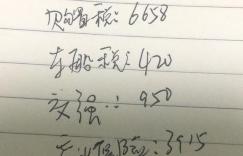 购置税: 6658
车船税: 420
交强: 950
商业保险: 3915